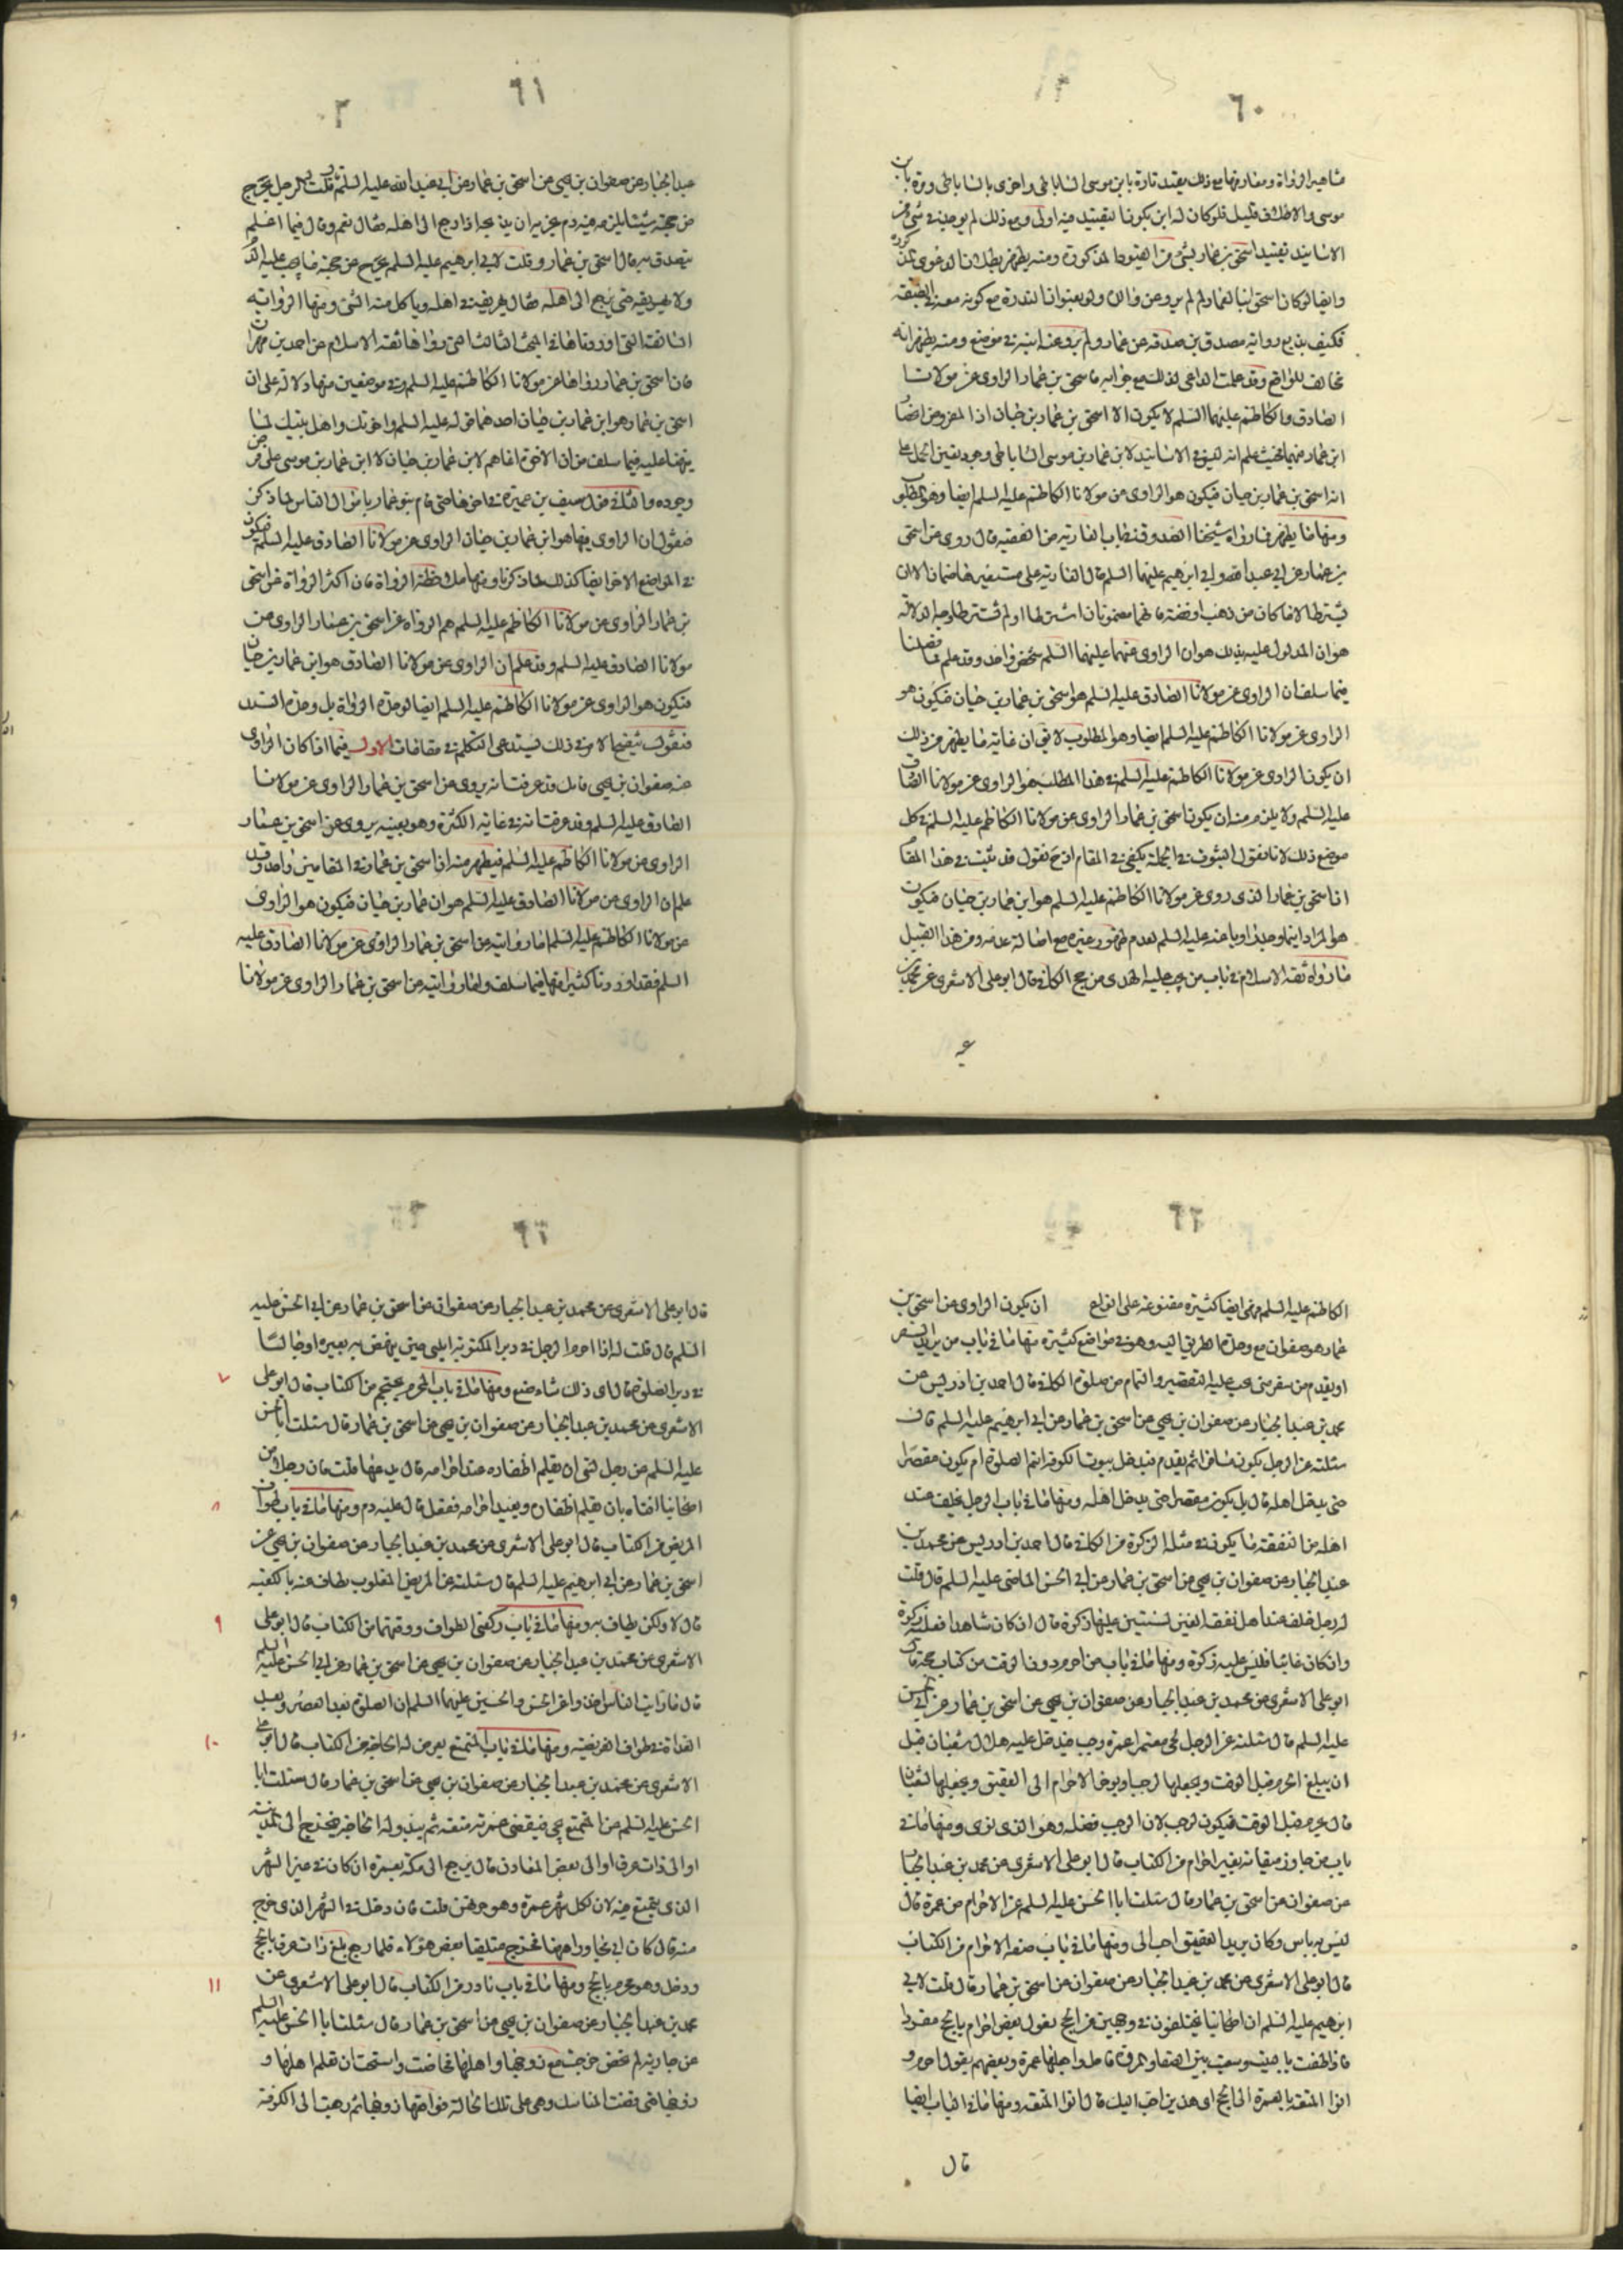 ٦٠
مشاهير الرواة ومعاريفها مع ذلك يقيد تارة بابن موسى الساباطى واخرى بالساباطى ومرة بابن
موسى والاطلاق قليل فلو كان له ابن يكون التقييد فيه اولى ومع ذلك لم يوجد فى شئ من
الاسانيد تقييد اسحق بن عمار بشئ من القيود المذكورة ومنه يظهر بطلان الدعوى
وايضا لو كان اسحق ابنا لعمار لم لم يرو عن والده ولو بعنوان الندرة مع كونه معه فى الطبقة
فكيف يذيع رواية مصدق بن صدقة عن عمار ولم يرو عنه ابنه فى موضع ومنه يظهر انه
مخالف للواقع وقد علمت الداعى لذلك مع جوابه فاسحق بن عمار الراوى عن مولانا
الصادق والكاظم عليهما السلم لا يكون الا اسحق بن عمار بن حيان اذ المفروض انحصار
ابن عمار فيهما فحيث علم انه ليس فى الاسانيد لابن عمار بن موسى الساباطى وجود يتعين الحمل على
انه اسحق بن عمار بن حيان فيكون هو الراوى عن مولانا الكاظم عليه السلم ايضا وهو المطلوب
ومنها ما يظهر مما رواه شيخنا الصدوق فى باب العارية من الفقيه قال روى عن اسحق
بن عمار عن ابى عبد الله او ابى ابرهيم عليهما السلم قال العارية على مستعيرها ضمان الا ان
يشترط الا ما كان من ذهب او فضة فانهما مضمونان اشترطا او لم يشترطا وجه الدلالة
هو ان المدلول عليه بذلك هو ان الراوى عنهما عليهما السلم شخص واحد وقد علم مما فصلنا
فيما سلف ان الراوى عن مولانا الصادق عليه السلم هو اسحق بن عمار بن حيان فيكون هو
الراوى عن مولانا الكاظم عليه السلم ايضا وهو المطلوب لا يق ان غاية ما يظهر من ذلك
ان يكون الراوى عن مولانا الكاظم عليه السلم فى هذا المطلب هو الراوى عن مولانا الصادق
عليه السلم ولا يلزم منه ان يكون اسحق بن عمار الراوى عن مولانا الكاظم عليه السلم فى كل
موضع ذلك لانا نقول الثبوت فى الجملة يكفى فى المقام اذ ح نقول قد ثبت فى هذا المقام
ان اسحق بن عمار الذى روى عن مولانا الكاظم عليه السلم هو ابن عمار بن حيان فيكون
هو المراد اينما وجد راويا عنه عليه السلم لعدم ظهور غيره مع اصالة عدمه ومن هذا القبيل
ما رواه ثقة الاسلام فى باب من يجب عليه الهدى من حج الكافى قال ابو على الاشعرى عن محمد بن
٦١
عبد الجبار عن صفوان بن يحيى عن اسحق بن عمار عن ابى عبد الله عليه السلم قال قلت له الرجل يخرج
من حجته شيئا يلزمه فيه دم يجزيه ان يذبحه اذا رجع الى اهله فقال نعم وقال فيما اعلم
يتصدق به قال اسحق بن عمار وقلت لابى ابرهيم عليه السلم الرجل يخرج من حجته ما يجب عليه الدم
ولا يهريقه حتى يرجع الى اهله فقال يهريقه فى اهله وياكل منه الشئ ومنها الرواية
السابقة التى اوردناها فى المبحث الثالث التى رواها ثقة الاسلام عن احمد بن مهران
فان اسحق بن عمار رواها عن مولانا الكاظم عليه السلم وفى موضعين منها دلالة على ان
اسحق بن عمار هو ابن عمار بن حيان احدهما قوله عليه السلم واخوتك واهل بيتك لما
نبهنا عليه فيما سلف من ان الاخوة انما هم لابن عمار بن حيان لا ابن عمار بن موسى على فرض
وجوده والثانى قول سيف بن عميرة فى اخرها حتى قام بنو عمار باموال الناس لما ذكر
فنقول ان الراوى فيها هو ابن عمار بن حيان الراوى عن مولانا الصادق عليه السلم فيكون
فى المواضع الاخر ايضا كذلك لما ذكرنا ومنها ملاحظة الرواة فان اكثر الرواة عن اسحق
بن عمار الراوى عن مولانا الكاظم عليه السلم هم الرواة عن اسحق بن عمار الراوى عن
مولانا الصادق عليه السلم وقد علم ان الراوى عن مولانا الصادق هو ابن عمار بن حيان
فيكون هو الراوى عن مولانا الكاظم عليه السلم ايضا لوحدة الرواة بل وحدة السند
فنقول تنقيح الامر فى ذلك يستدعى التكلم فى مقامات الاول فيما اذا كان الراوى
عنه صفوان بن يحيى فانك قد عرفت انه يروى عن اسحق بن عمار الراوى عن مولانا
الصادق عليه السلم وقد عرفت انه فى غاية الكثرة وهو بعينه يروى عن اسحق بن عمار
الراوى عن مولانا الكاظم عليه السلم فيظهر منه ان اسحق بن عمار فى المقامين واحد وقد
علم ان الراوى عن مولانا الصادق عليه السلم هو ابن عمار بن حيان فيكون هو الراوى
عن مولانا الكاظم عليه السلم اما روايته عن اسحق بن عمار الراوى عن مولانا الصادق عليه
السلم فقد اوردنا كثيرا منها فيما سلف واما روايته عن اسحق بن عمار الراوى عن مولانا
٦٢
الكاظم عليه السلم فهى ايضا كثيرة متنوعة على انواع ان يكون الراوى عن اسحق بن
عمار هو صفوان مع وحدة الطريق اليه وهو فى مواضع كثيرة منها ما فى باب من يريد السفر
او يقدم من سفر متى يجب عليه التقصير والتمام من صلوة الكافى قال احمد بن ادريس عن
محمد بن عبد الجبار عن صفوان بن يحيى عن اسحق بن عمار عن ابى ابرهيم عليه السلم قال
سئلته عن الرجل يكون مسافرا ثم يقدم فيدخل بيوت الكوفة ايتم الصلوة ام يكون مقصرا
حتى يدخل اهله قال بل يكون مقصرا حتى يدخل اهله ومنها ما فى باب الرجل يخلف عند
اهله من النفقة ما يكون فى مثله الزكوة من الكافى قال احمد بن ادريس عن محمد بن
عبد الجبار عن صفوان بن يحيى عن اسحق بن عمار عن ابى الحسن الماضى عليه السلم قال قلت
له رجل خلف عند اهل نفقة الفين لسنتين عليها زكوة قال ان كان شاهدا فعليه زكوة
وان كان غائبا فليس عليه زكوة ومنها ما فى باب من احرم دون الوقت من كتاب حجه قال
ابو على الاشعرى عن محمد بن عبد الجبار عن صفوان بن يحيى عن اسحق بن عمار عن ابى الحسن
عليه السلم قال سئلته عن الرجل يجئ معتمرا عمرة رجب فيدخل عليه هلال شعبان قبل
ان يبلغ الحرم قبل الوقت ويجعلها لرجب او يؤخر الاحرام الى العقيق ويجعلها لشعبان
قال يحرم قبل الوقت فيكون لرجب لان لرجب فضله وهو الذى نوى ومنها ما فى
باب من جاوز ميقاته بغير احرام من الكتاب قال ابو على الاشعرى عن محمد بن عبد الجبار
عن صفوان عن اسحق بن عمار قال سئلت ابا الحسن عليه السلم عن الاحرام من غمرة قال
ليس به باس وكان بريد العقيق احب الى ومنها ما فى باب صفة الاحرام من الكتاب
قال ابو على الاشعرى عن محمد بن عبد الجبار عن صفوان عن اسحق بن عمار قال قلت لابى
ابرهيم عليه السلم ان اصحابنا يختلفون فى وجهين من الحج يقول بعض احرم بالحج مفردا
فاذا طفت بالبيت وسعيت بين الصفا والمروة فاحل واجعلها عمرة وبعضهم يقول احرم و
انوا المتعة بالعمرة الى الحج اى هذين احب اليك قال انوا المتعة ومنها ما فى الباب ايضا
قال
٦٣
قال ابو على الاشعرى عن محمد بن عبد الجبار عن صفوان عن اسحق بن عمار عن ابى الحسن عليه
السلم قال قلت له اذا احرم الرجل فى دبر المكتوبة ايلبى حين ينهض به بعيره او جالسا
فى دبر الصلوة قال اى ذلك شاء صنع ومنها ما فى باب المحرم يحتجم من الكتاب قال ابو على
٧
الاشعرى عن محمد بن عبد الجبار عن صفوان بن يحيى عن اسحق بن عمار قال سئلت ابا الحسن
عليه السلم عن رجل نسى ان يقلم اظفاره عند احرامه قال يدعها قلت فان رجلا من
اصحابنا افتاه بان يقلم اظفاره ويعيد احرامه ففعل قال عليه دم ومنها ما فى باب طواف
٨
المريض من الكتاب قال ابو على الاشعرى عن محمد بن عبد الجبار عن صفوان بن يحيى عن
اسحق بن عمار عن ابى ابرهيم عليه السلم قال سئلته عن المريض المغلوب يطاف عنه بالكعبة
قال لا ولكن يطاف به ومنها ما فى باب ركعتى الطواف ووقتهما من الكتاب قال ابو على
٩
الاشعرى عن محمد بن عبد الجبار عن صفوان بن يحيى عن اسحق بن عمار عن ابى الحسن عليه السلم
قال ما رايت الناس اخذوا عن الحسن والحسين عليهما السلم الا الصلوة بعد العصر وبعد
الغداة فى طواف الفريضة ومنها ما فى باب المتمتع يعرض له الحاجة من الكتاب قال ابو على
١٠
الاشعرى عن محمد بن عبد الجبار عن صفوان بن يحيى عن اسحق بن عمار قال سئلت ابا
الحسن عليه السلم عن المتمتع يجئ فيقضى عمرته متعة ثم يبدو له الحاجة فيخرج الى المدينة
او الى ذات عرق او الى بعض المعادن قال يرجع الى مكة بعمرة ان كان فى غير الشهر
الذى يتمتع فيه لان لكل شهر عمرة وهو مرتهن قلت فان دخل فى الشهر الذى خرج
منه قال كان ابى مجاورا هيهنا فخرج متلقيا بعض هؤلاء فلما رجع بلغ ذات عرق بالحج
ودخل وهو محرم بالحج ومنها ما فى باب نادر من الكتاب قال ابو على الاشعرى عن
١١
محمد بن عبد الجبار عن صفوان بن يحيى عن اسحق بن عمار قال سئلت ابا الحسن عليه السلم
عن جارية لم تحض خرجت مع زوجها واهلها فحاضت واستحيت ان تعلم اهلها و
زوجها حتى قضت المناسك وهى على تلك الحالة فواقعها زوجها ثم رجعت الى الكوفة